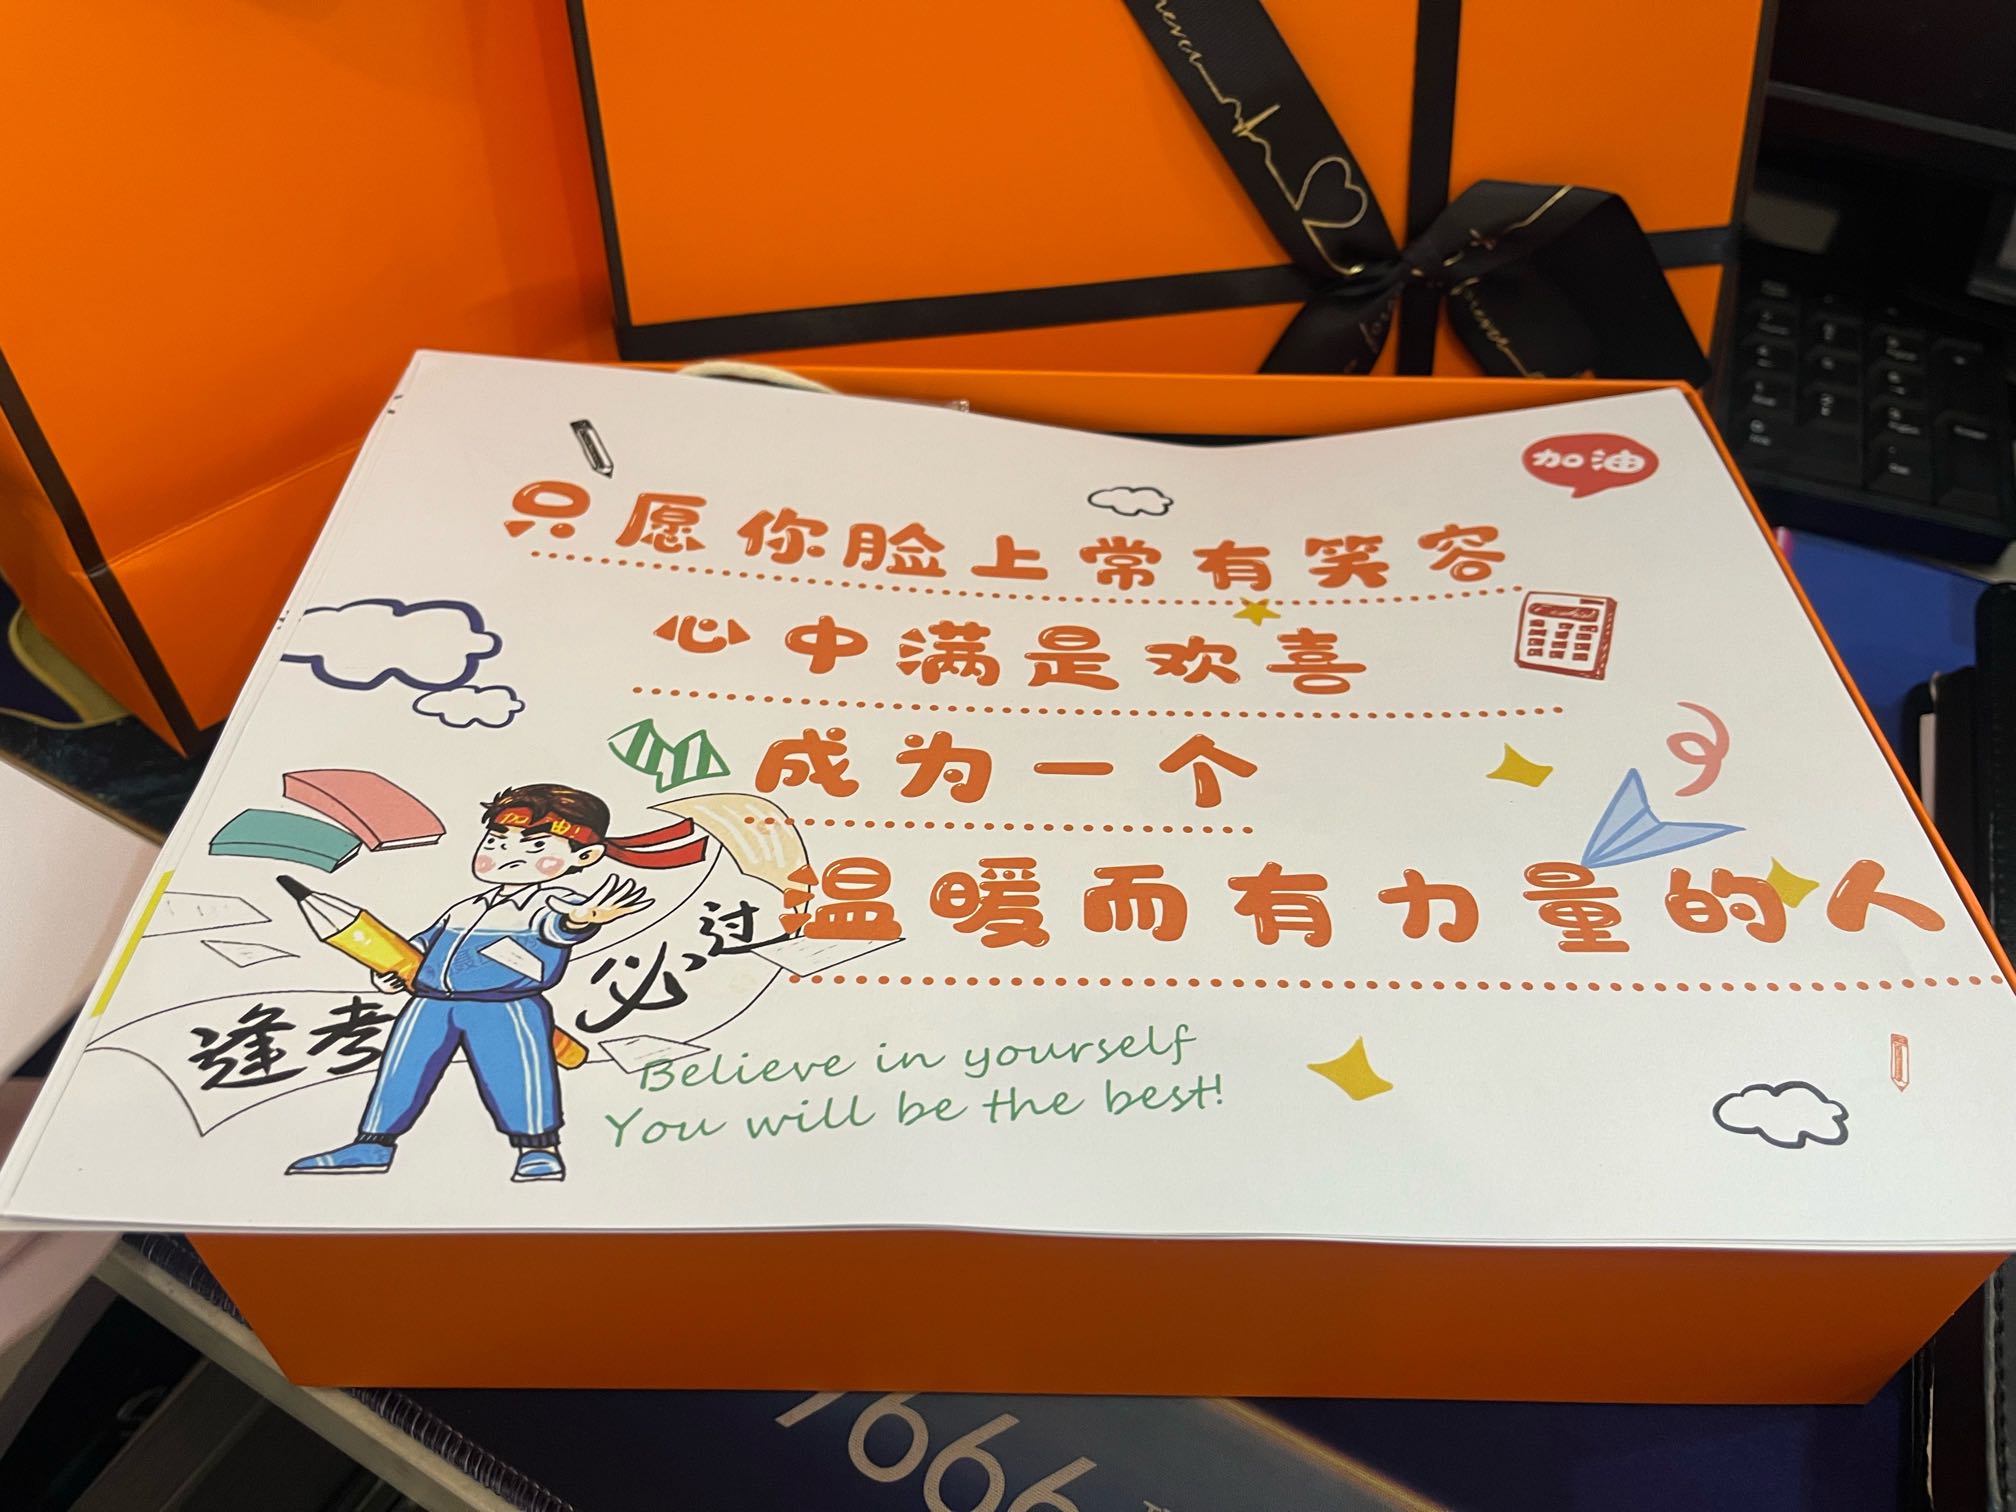 forever
forever
加油
只愿你脸上常有笑容
心中满是欢喜
成为一个
温暖而有力量的人
加油!
逢考必过
Believe in yourself
You will be the best!